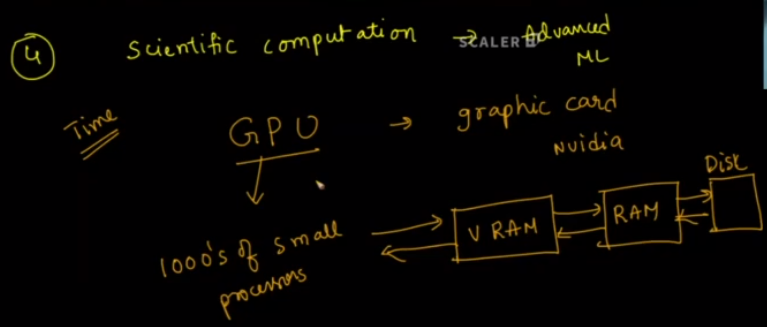 4 Scientific computation → Advanced
SCALER
ML
Time
GPU → graphic card
Nvidia
Disk
1000's of small
processors
V RAM
RAM